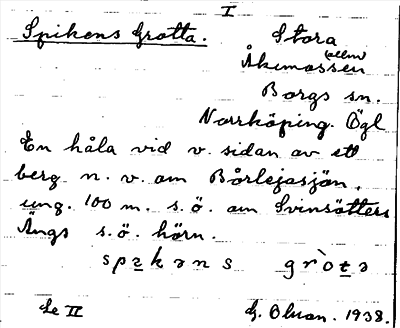 I
Spikens Grotta. Stora
(allm)
Åkemossen
Borgs sn.
Norrköping. Ögl
En håla vid v. sidan av ett
berg n. v. om Bårlejasjön,
ung. 100 m. s. ö. om Svinsätters
Ängs s. ö. hörn.
spɛkəns gròtə
Se II G. Olson. 1938.